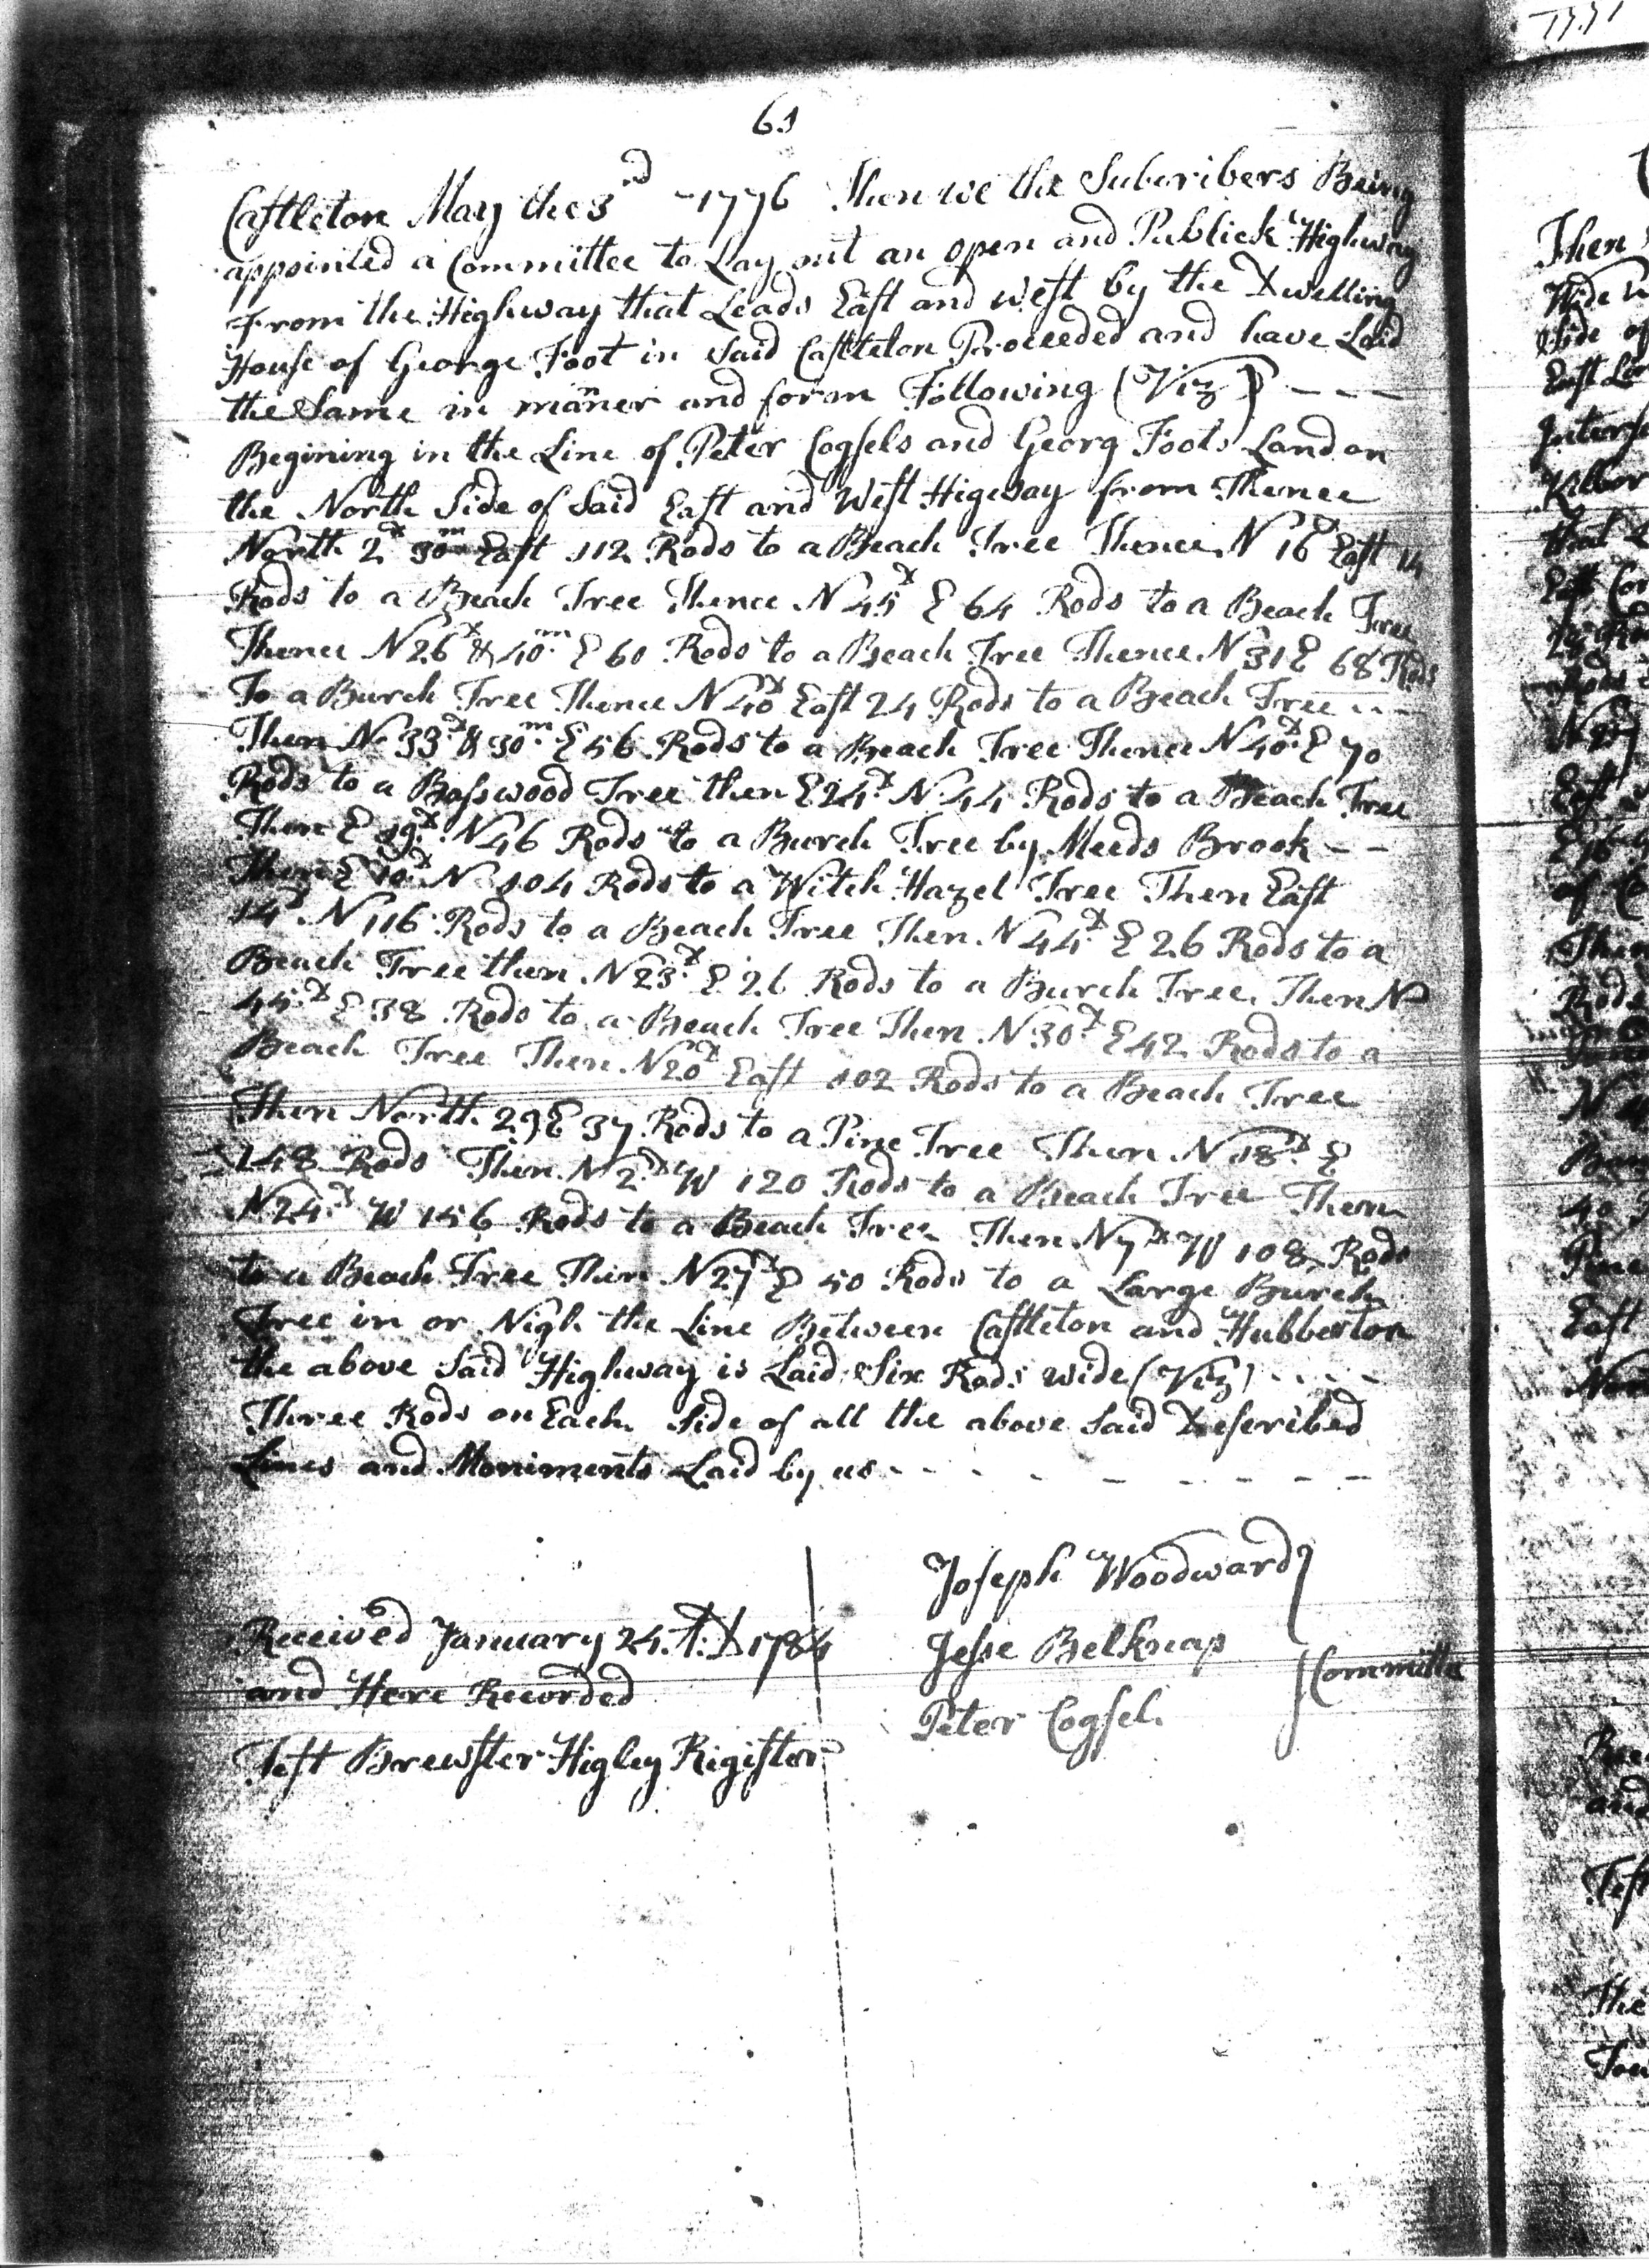 61
Castleton May the 3rd - 1776 Then we the Subcribers Being
appointed a Committee to Lay out an open and Publick Highway
From the Highway that Leads East and West by the Dwelling
House of George Foot in Said Castleton Proceeded and have Laid
the Same in maner and form Following (Viz) - - -
Begining in the Line of Peter Cogsels and Georg Foots Land on
the North Side of Said East and West Higeway from Thence
North 2d 30m East 112 Rods to a Beach Tree Thence N 16 East 14
Rods to a Beach Tree Thence N 45d E 64 Rods to a Beach Tree
Thence N 26d & 40m E 60 Rods to a Beach Tree Thence N 31 E 68 Rods
To a Burch Tree Thence N 40d East 24 Rods to a Beach Tree - - -
Then N 33d & 30m E 56 Rods to a Beach Tree Thence N 40d E 70
Rods to a Basswood Tree then E 24d N 44 Rods to a Beach Tree
Then E 19d N 46 Rods to a Burch Tree by Meeds Brook - -
Then E 10d N 104 Rods to a Witch Hazel Tree Then East
14d N 116 Rods to a Beach Tree Then N 44d E 26 Rods to a
Beach Tree then N 23d E 26 Rods to a Burch Tree Then N
45d E 38 Rods to a Beach Tree Then N 30d E 42 Rods to a
Beach Tree Then N 20d East 102 Rods to a Beach Tree
Then North 29 E 37 Rods to a Pine Tree Then N 18d E
148 Rods Then N 2d W 120 Rods to a Beach Tree Then
N 24d W 156 Rods to a Beach Tree Then N 7d W 108 Rods
to a Beach Tree Then N 27d E 50 Rods to a Large Burch
Tree in or Nigh the Line Between Castleton and Hubberton
the above Said Highway is Laid Six Rods wide (Viz) - - - -
Three Rods on Each Side of all the above Said Described
Lines and Moniments Laid by us - - - - - - - -
Joseph Woodward
Jesse Belknap
Peter Cogsel
Committe
Received January 24 A:D 1784
and Here Recorded
Test Brewster Higley Rigister